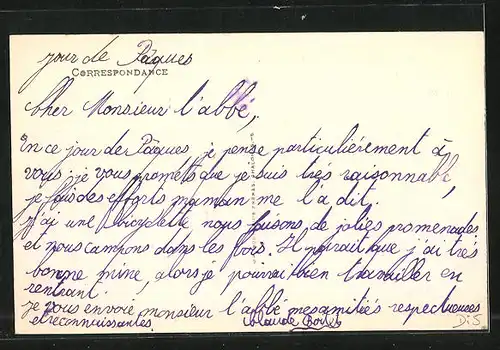 jour de Pâques
CORRESPONDANCE
Cher Monsieur l'abbé,
En ce jour de Pâques je pense particulièrement à
vous, je vous promets que je suis très raisonnable,
je fais des efforts maman me l'a dit.
j'ai une bicyclette nous faisons de jolies promenades
et nous campons dans les bois. Il parait que j'ai très
bonne mine, alors je pourrai bien travailler en
rentrant.
je vous envoie monsieur l'abbé mes amitiés respectueuses
et reconnaissantes. Claude
D:5